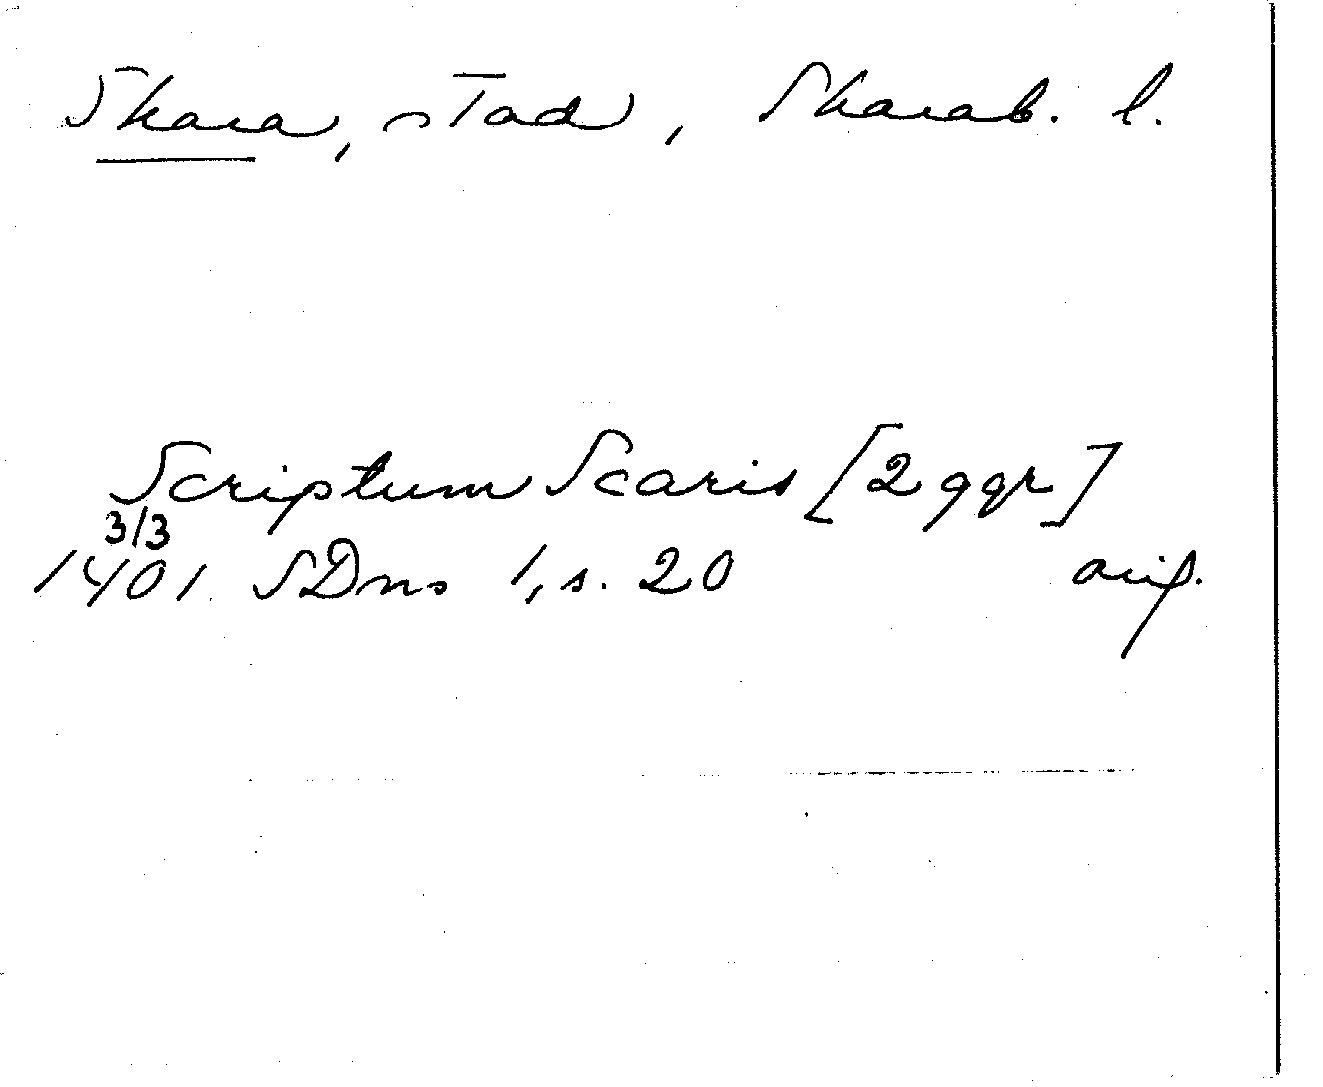 Skara, stad, Skarab. l.
Scriptum Scaris [2 ggr]
3/3
1401 SDns 1, s. 20 orig.